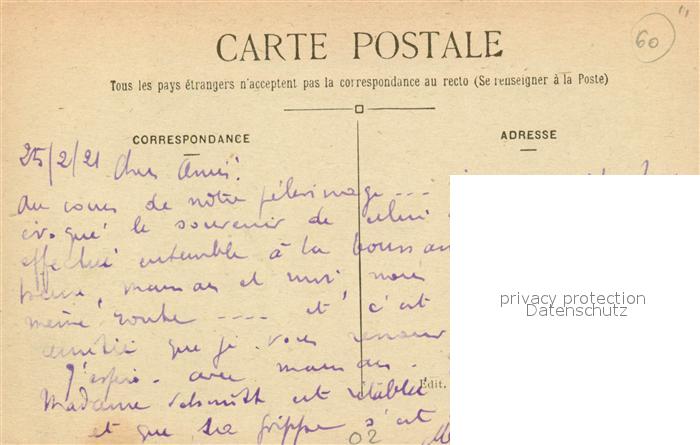 60
CARTE POSTALE
Tous les pays étrangers n'acceptent pas la correspondance au recto (Se renseigner à la Poste)
CORRESPONDANCE
ADRESSE
25/2/21 Chers Amis!
Au cours de notre pélerinage ---
évoqué le souvenir de celui
effectué ensemble à la
maman et moi nous
même route ---- et c'est
amitié que je vous
J'espère avec maman
Madame Schmitt est rétablie
et que sa grippe s'est
Edit.
02
privacy protection
Datenschutz